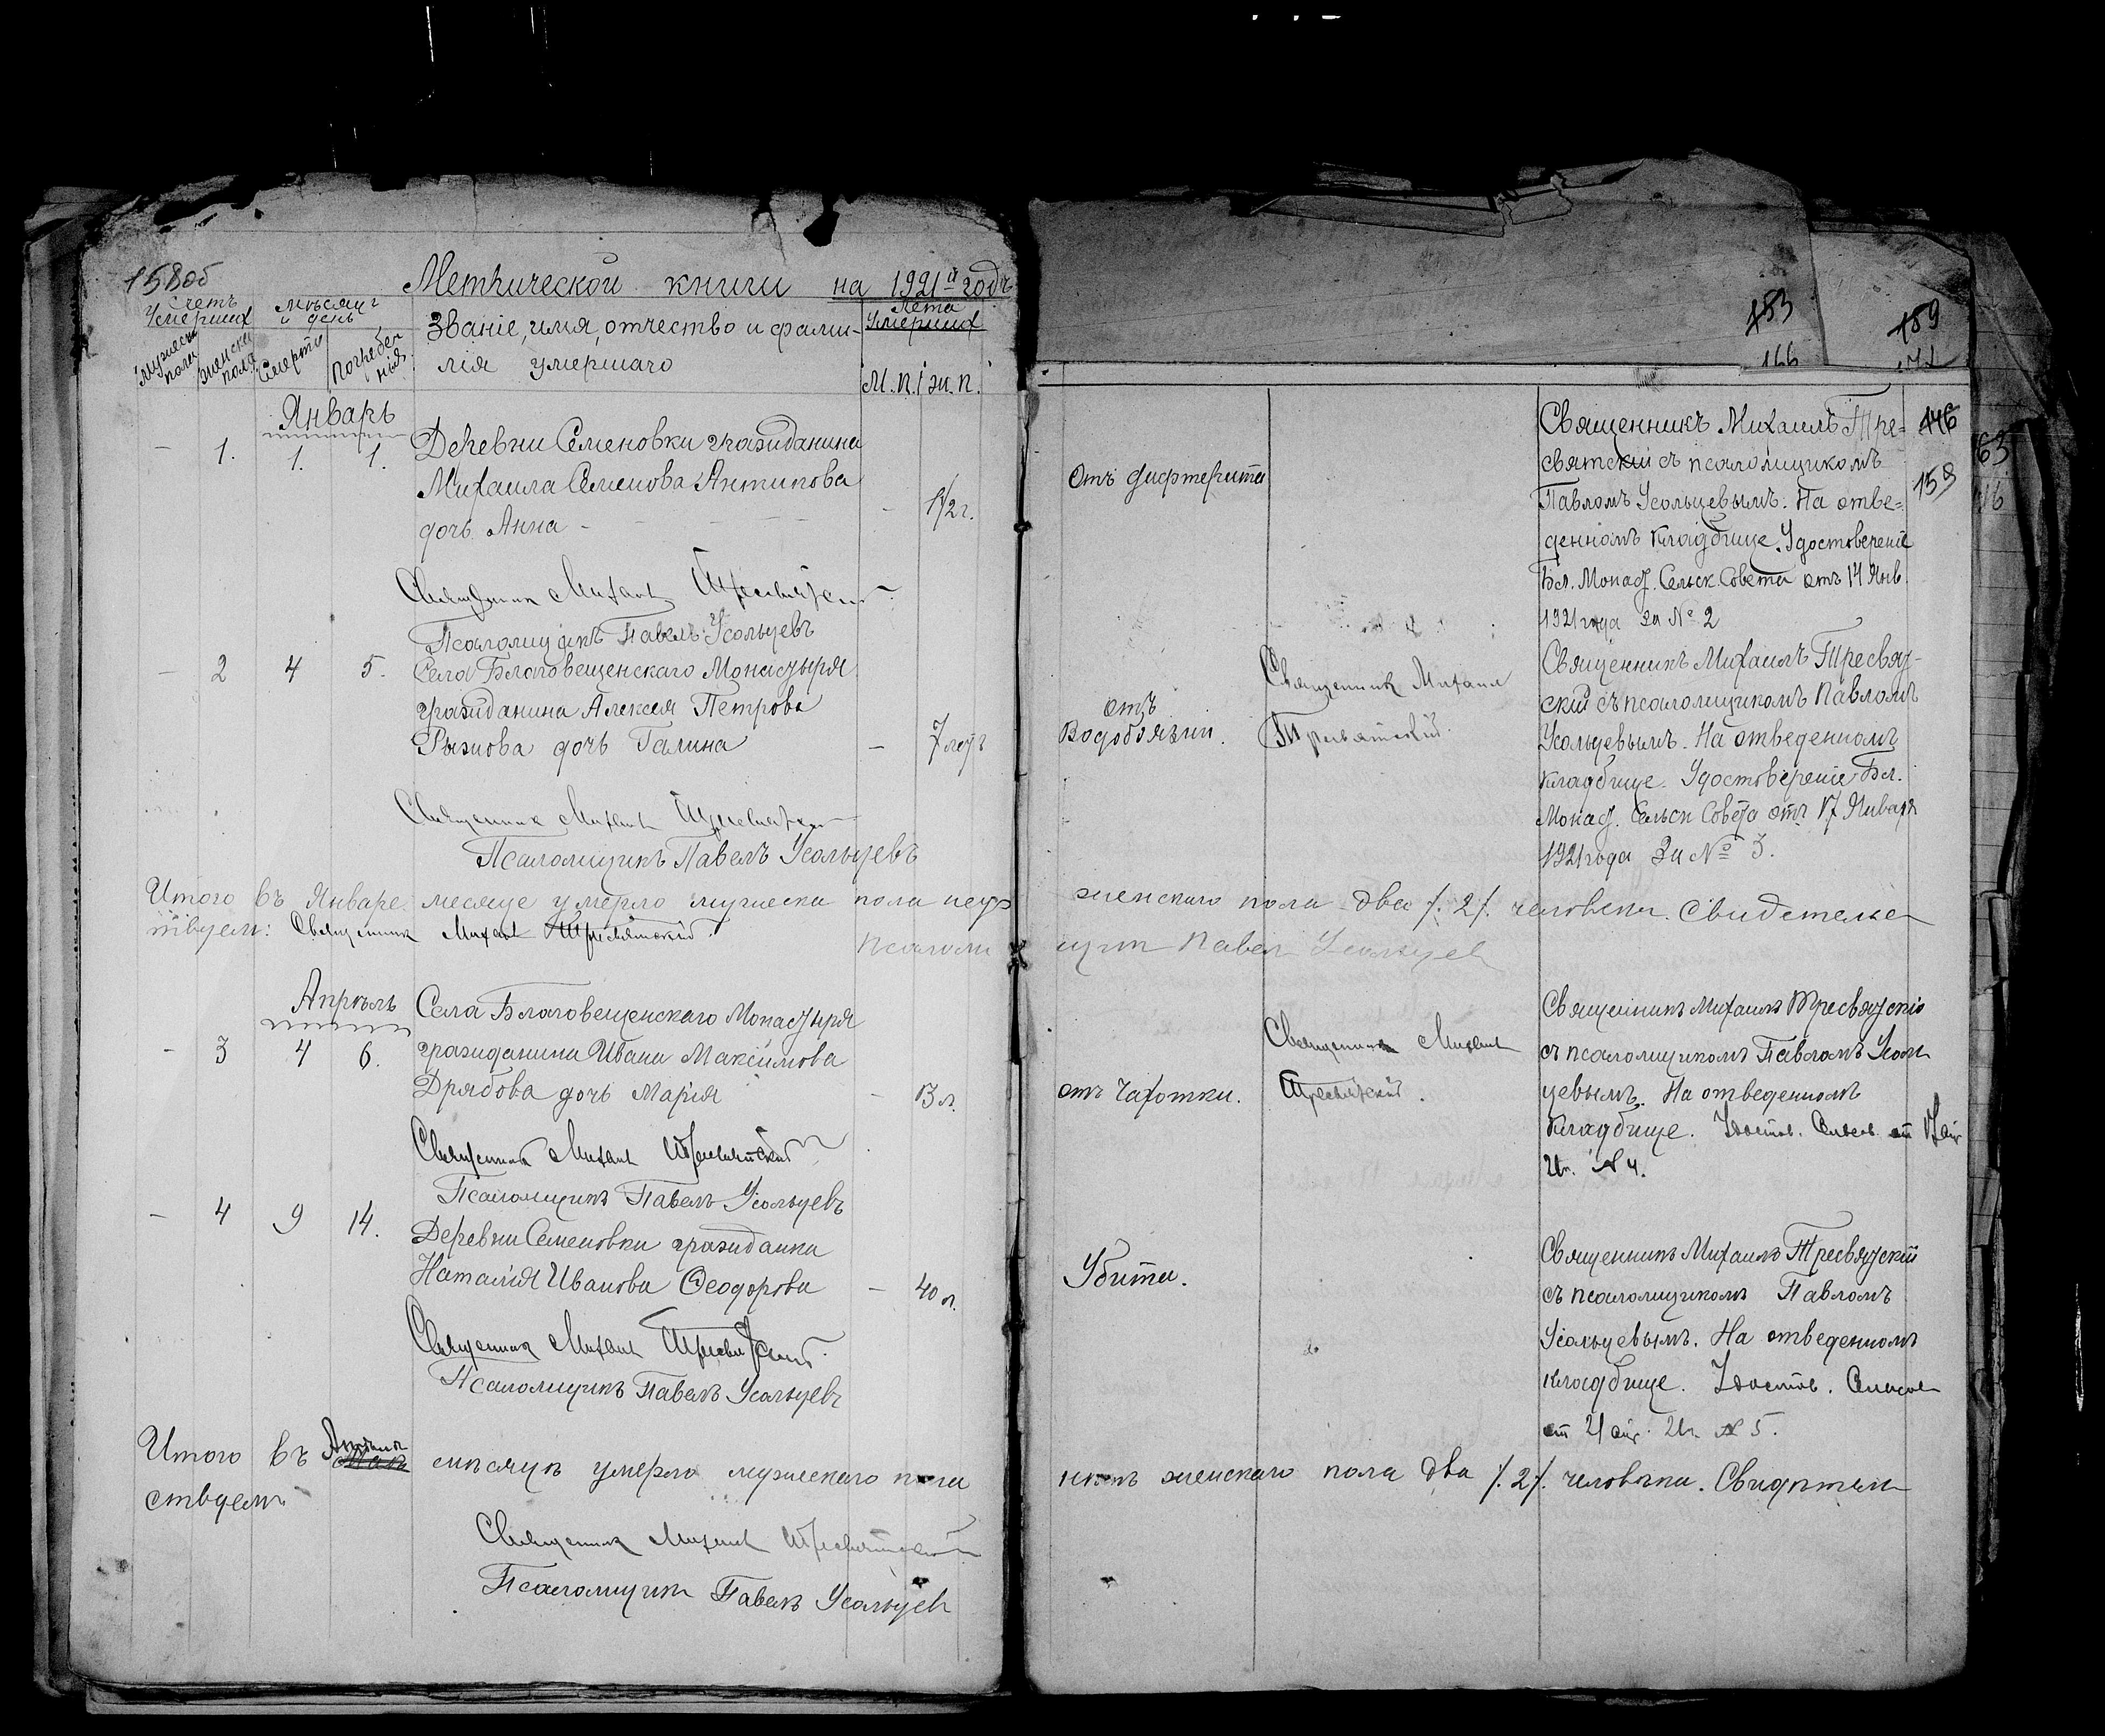 158об
Метрической книги на 1921й годъ
Счетъ Умерших
Мужеска пола
Женска пола
Месяцъ и день
Смерти
Погребения
Званіе, имя, отчество и фами-
лія умершаго
Лета Умерших
М. п. ж. п.
Январь
- 1. 1. 1. Деревни Семеновки гражданина
Михаила Семенова Антипова
дочь Анна - 1/2 г.
Священник Михаил Тресвятский
Псаломщикъ Павелъ Усольцевъ
- 2 4 5. Села Благовещенскаго Монастыря
гражданина Алексея Петрова
Рыжкова дочь Галина - 7 летъ
Священник Михаил Тресвятский
Псаломщикъ Павелъ Усольцевъ
Итого въ Январе месяце умерло мужеска пола
Священник Михаил Тресвятский. Псаломщик
Апрель
Села Благовещенскаго Монастыря
- 3 4 6. гражданина Ивана Максимова
Дрябова дочь Марія - 13 л.
Священник Михаил Тресвятский
Псаломщикъ Павелъ Усольцевъ
- 4 9 14.
Деревни Семеновки гражданка
Наталія Иванова Ѳеодорова - 40 л.
Священник Михаил Тресвятский
Псаломщикъ Павелъ Усольцевъ
Итого въ Апреле месяце умерло мужескаго пола
ствуем
Священник Михаил Тресвятский
Псаломщик Павелъ Усольцев
183
166
189
172
146
158
63
Отъ дифтерита
Священникъ Михаилъ Тре=
святский съ псаломщикомъ
Павломъ Усольцевымъ. На отве=
денномъ кладбище. Удостоверение
Бл. Монаст. Сельск Совета отъ 14 Янв.
1921 года за № 2
отъ
Водобоязни.
Священник Михаил
Тресвятский.
Священникъ Михаилъ Тресвят-
ский съ псаломщикомъ Павломъ
Усольцевымъ. На отведенномъ
кладбище. Удостоверение Бл.
Монаст. Сельск Совета отъ 17 Января
1921 года За № 3.
женскаго пола два /.2/. человека. Свидетельс
щик Павел Усольцев
отъ Чахотки.
Священник Михаил
Тресвятский.
Священникъ Михаилъ Тресвятскій
съ псаломщикомъ Павломъ Усоль
цевымъ. На отведенномъ
Кладбище. Удостов. от 17 апр
21 г. № 4.
Убита.
Священникъ Михаилъ Тресвятский
съ псаломщикомъ Павломъ
Усольцевымъ. На отведенномъ
кладбище. Удостов.
от 21 апр. 21 г. № 5.
женскаго пола два /.2/. человека. Свидетель